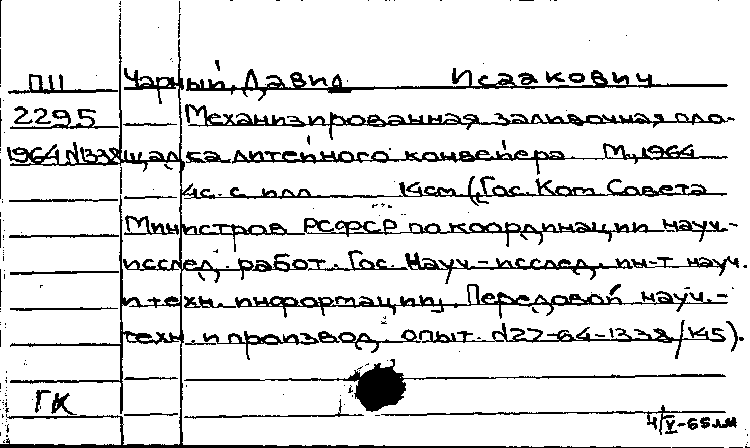 П11 Чарный, Давид Исаакович
2295 Механизированная заливочная пло-
1964 №1338 щадка литейного конвейера. М., 1964
4с. с илл 14см (Гос. Ком Совета
Министров РСФСР по координации науч.-
исслед. работ. Гос. Науч-исслед. ин-т науч.
и техн. информации. Передовой науч.-
техн. и производ. опыт. №27-64-1338/145).
ГК
4/V-65